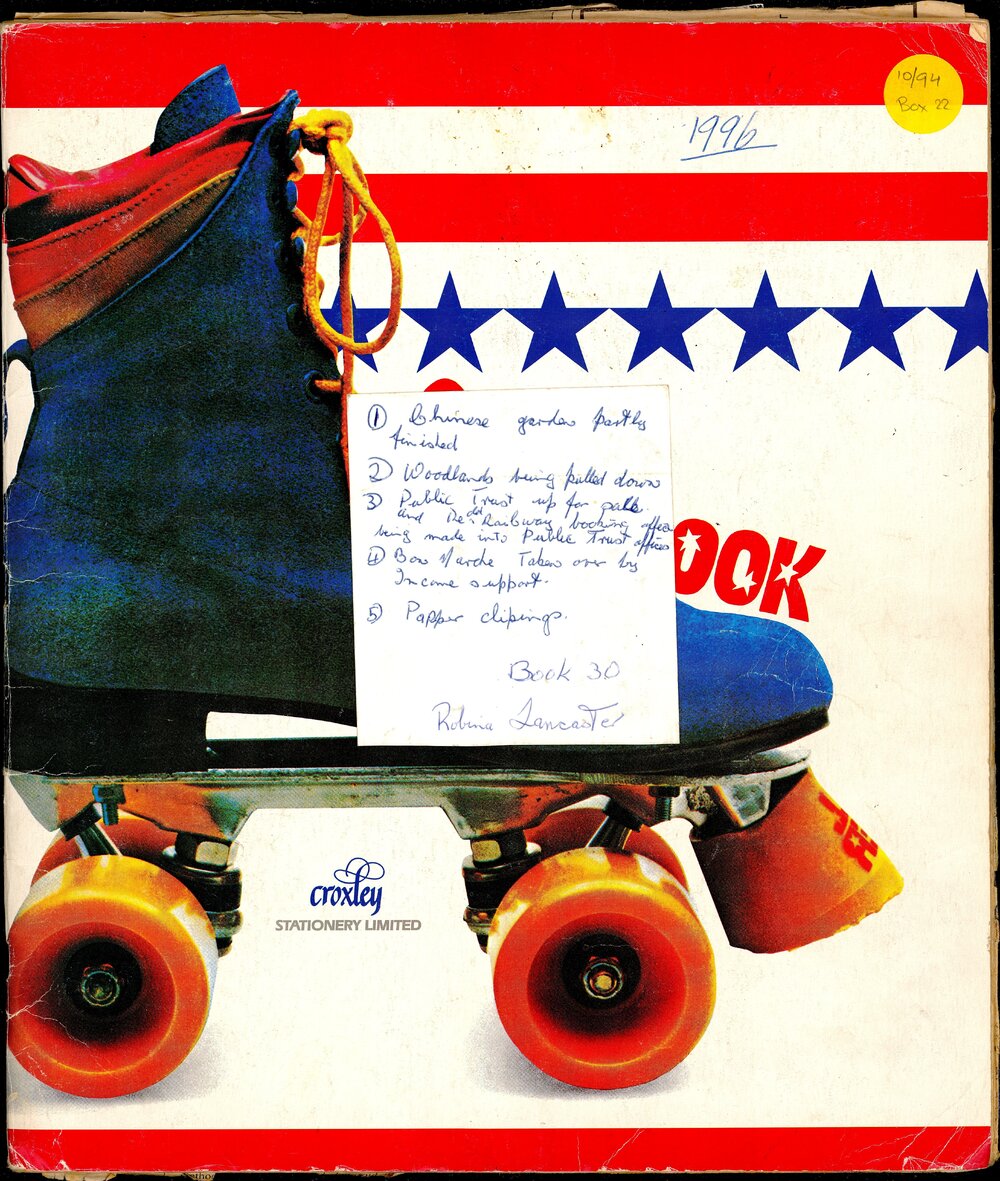 10/94
Box 22
1996
① Chinese garden partly
finished
② Woodlands being pulled down
③ Public Trust up for sale
and Railway booking offices
being made into Public Trust offices
④ Bon Marche Taken over by
Income support.
⑤ Papper clipings.
Book 30
Robina Lancaster
OOK
croxley
STATIONERY LIMITED